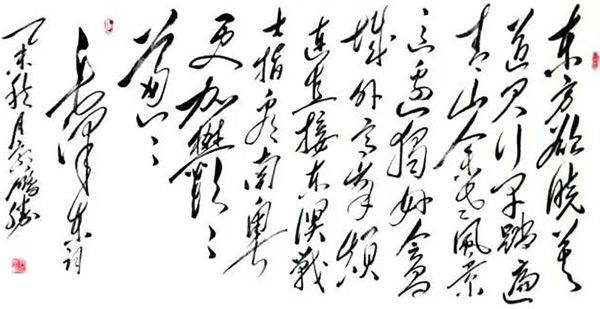 东方欲晓莫
道君行早踏遍
青山人未老風景
这边独好会昌
城外高峰颠
連直接东溟战
士指看南粤
更加鬱々
葱々
毛泽东词
乙未秋月